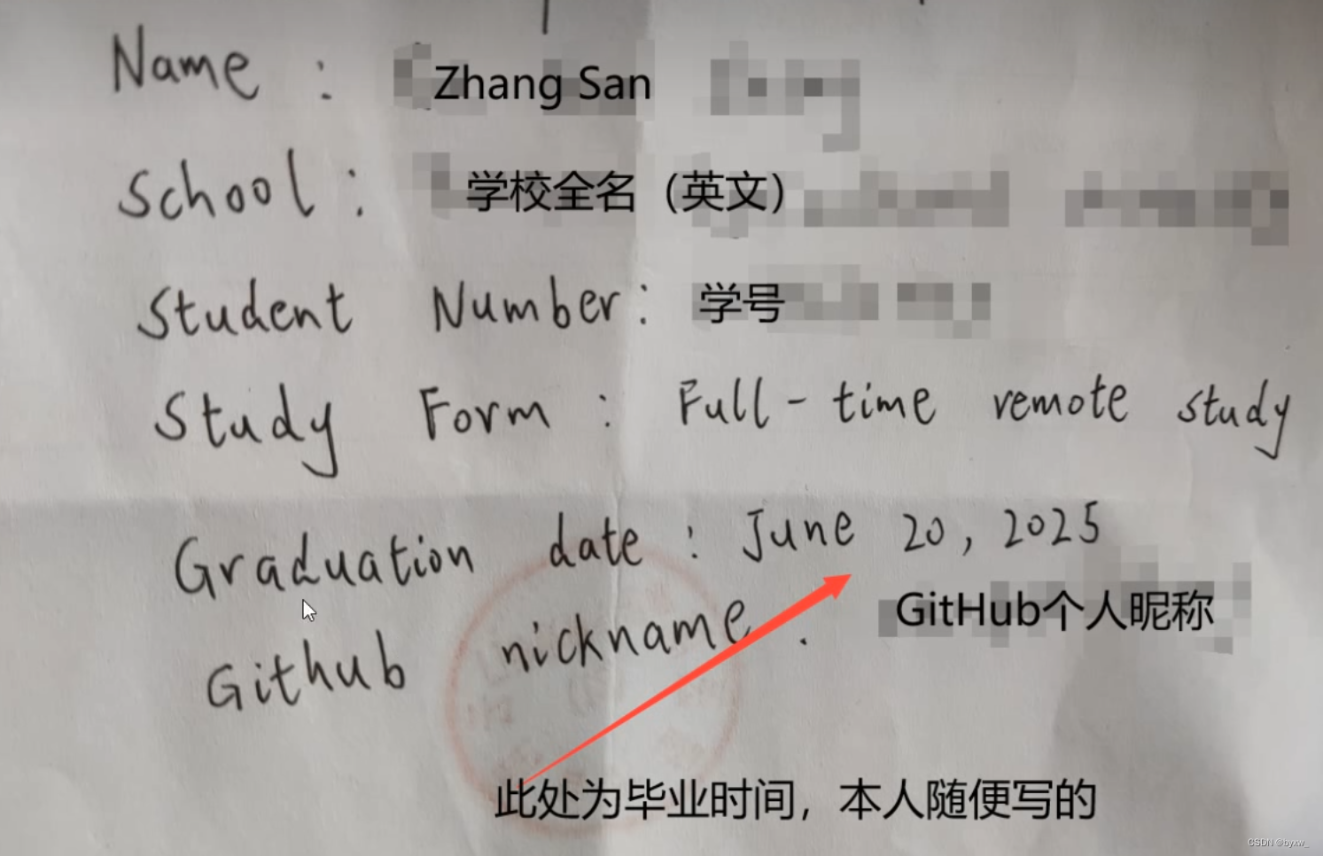 Name : Zhang San
School : 学校全名（英文）
Student Number : 学号
Study Form : Full-time remote study
Graduation date : June 20, 2025
Github nickname : GitHub个人昵称
此处为毕业时间，本人随便写的
CSDN @byxw_